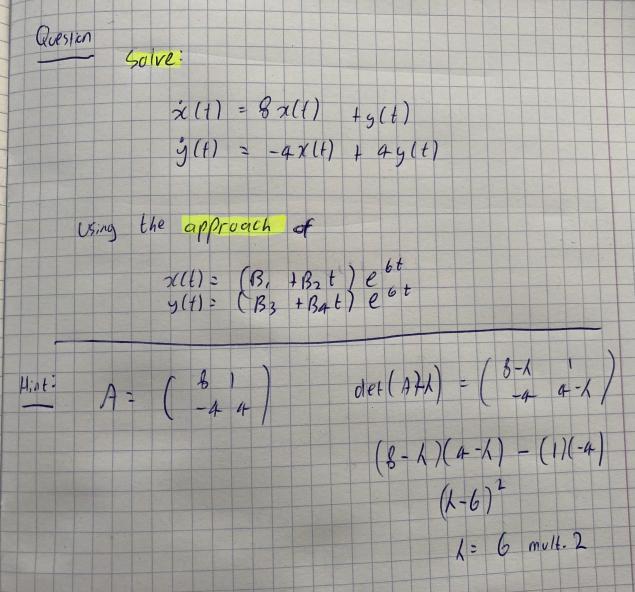 Question
Solve:
ẋ(t) = 8x(t) + y(t)
ẏ(t) = -4x(t) + 4y(t)
Using the approach of
x(t) = (B₁ + B₂t) e^{6t}
y(t) = (B₃ + B₄t) e^{6t}
Hint: A = ( 8 1 ; -4 4 )
det(A-λ) = ( 8-λ 1 ; -4 4-λ )
(8-λ)(4-λ) - (1)(-4)
(λ-6)²
λ = 6 mult. 2